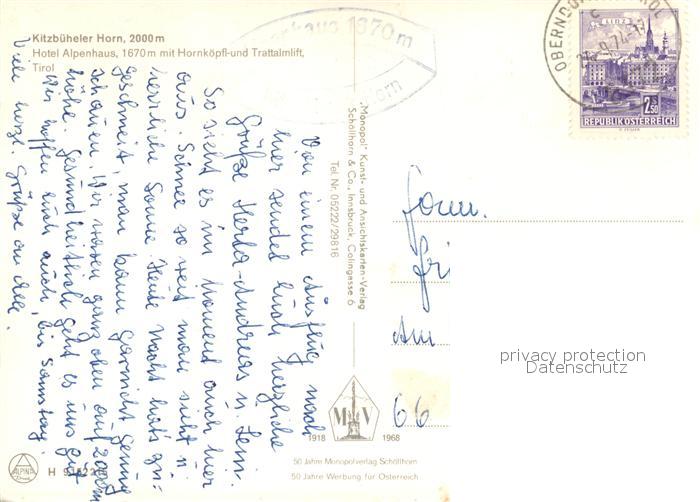 Kitzbüheler Horn, 2000 m
Hotel Alpenhaus, 1670 m mit Hornköpfl- und Trattalmlift,
Tirol
Von einem Ausflug nach
hier sendet Euch herzliche
Grüße Herta-Andreas u.
So sieht es im Moment auch hier
aus. Schnee so weit man sieht u.
herrliche Sonne. Heute Nacht hat's
geschneit, man kann garnicht genug
schauen. Wir waren ganz oben auf 2000 m
Höhe. Gesundheitlich geht es uns gut
Wir hoffen Euch auch, bis Samstag.
Viele herzl. Grüße an alle.
"Monopol" Kunst- und Ansichtskarten-Verlag
Schöllhorn & Co., Innsbruck, Colingasse 6
Tel. Nr. 05222/29816
1670 m
OBERNDORF
LINZ
2.50
REPUBLIK ÖSTERREICH
Fam.
Am
66
privacy protection
Datenschutz
M V
1918 1968
50 Jahre Monopolverlag Schöllhorn
50 Jahre Werbung für Österreich
ALPINA
H